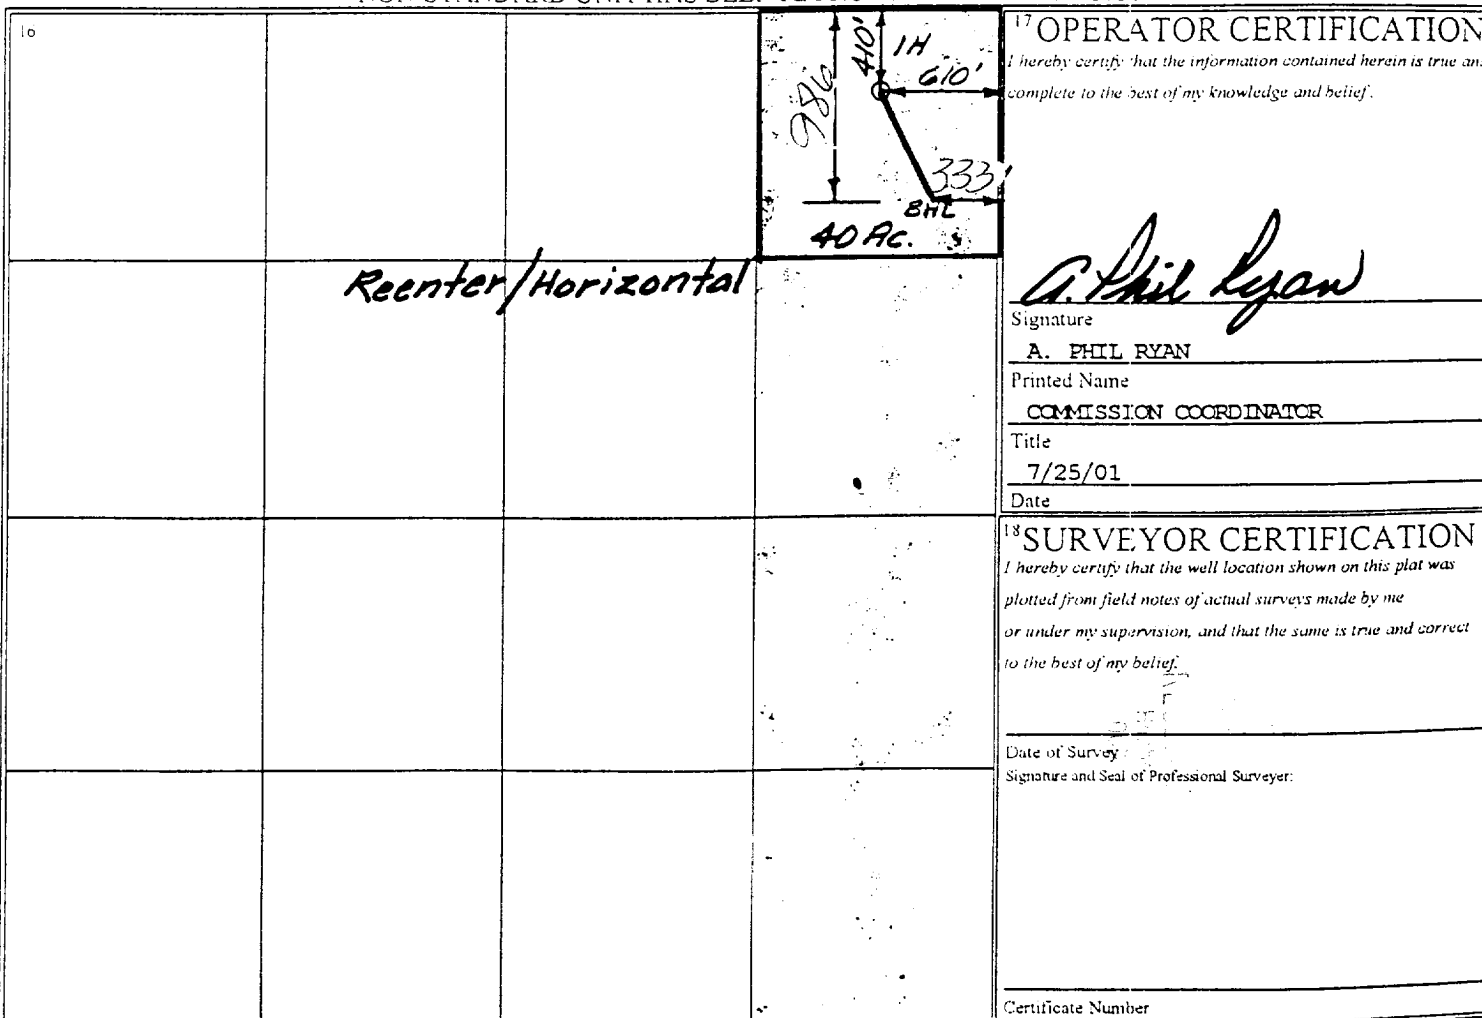 16
986
410'
1H
610'
333'
BHL
40 Ac.
Reenter/Horizontal
17 OPERATOR CERTIFICATION
I hereby certify that the information contained herein is true an
complete to the best of my knowledge and belief.
A. Phil Ryan
Signature
A. PHIL RYAN
Printed Name
COMMISSION COORDINATOR
Title
7/25/01
Date
18 SURVEYOR CERTIFICATION
I hereby certify that the well location shown on this plat was
plotted from field notes of actual surveys made by me
or under my supervision, and that the same is true and correct
to the best of my belief.
Date of Survey
Signature and Seal of Professional Surveyer:
Certificate Number